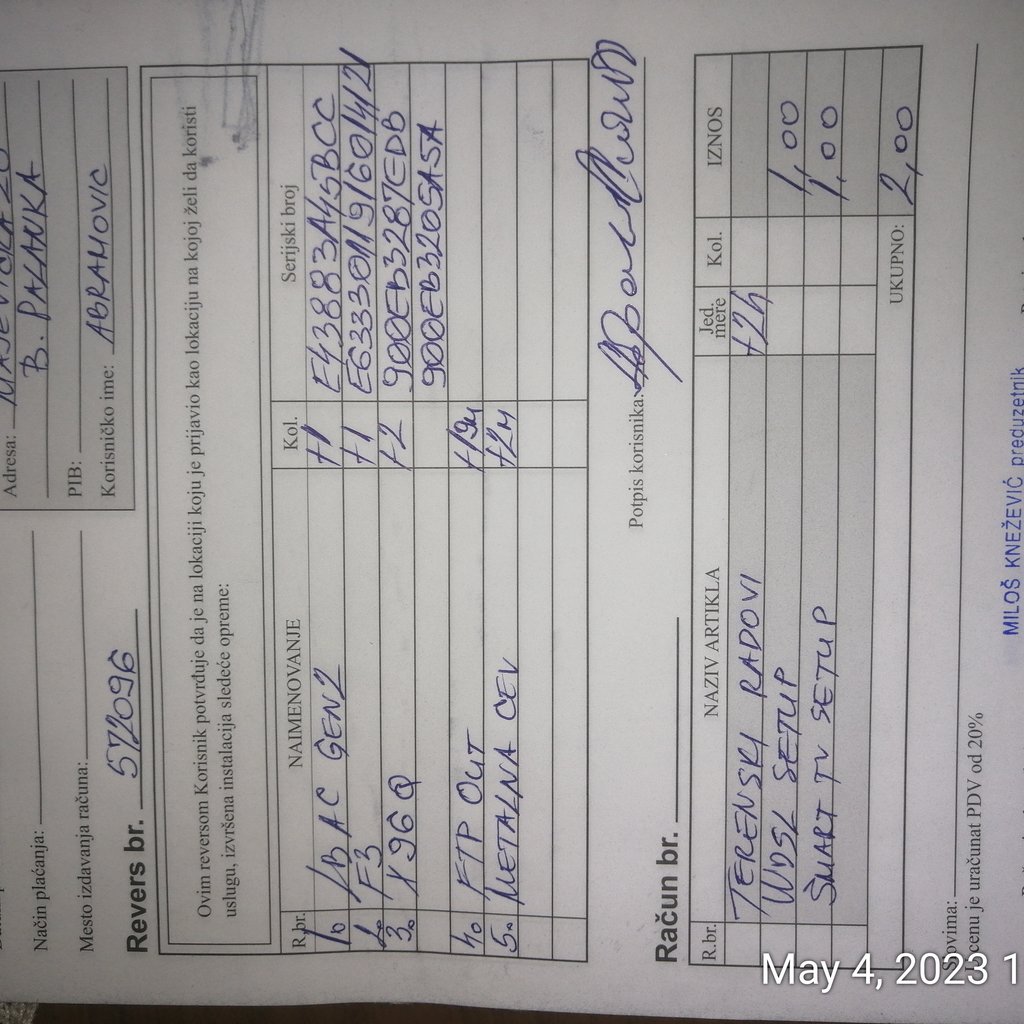 Adresa:
B. PALANKA
PIB:
Korisničko ime: ABRAMOVIC
Način plaćanja:
Mesto izdavanja računa:
Revers br. 572096
Ovim reversom Korisnik potvrđuje da je na lokaciji koju je prijavio kao lokaciju na kojoj želi da koristi
uslugu, izvršena instalacija sledeće opreme:
R.br. NAIMENOVANJE Kol. Serijski broj
1. AC GEN2 +1 E43883A45BCC
2. F3 +1
3. X96Q +2 900EB3287EDB
900EB3205A5A
4. FTP OUT +19m
5. METALNA CEV +2m
Potpis korisnika:
Račun br.
R.br. NAZIV ARTIKLA Jed. mere Kol. IZNOS
TERENSKI RADOVI +2h
WDSL SETUP 1,00
SMART TV SETUP 1,00
UKUPNO: 2,00
Slovima:
U cenu je uračunat PDV od 20%
MILOŠ KNEŽEVIĆ preduzetnik
May 4, 2023 1